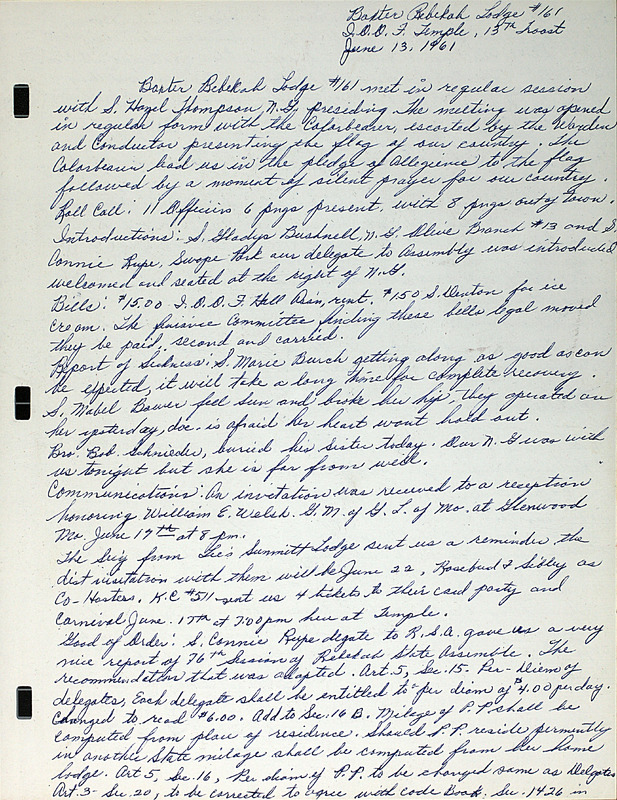 Baxter Rebekah Lodge #161
I.O.O.F. Temple, 13th Troost
June 13, 1961
Baxter Rebekah Lodge #161 met in regular session
with S. Hazel Thompson, N.G. presiding. The meeting was opened
in regular form with the Colorbearer, escorted by the Warden
and Conductor presenting the flag of our country. The
Colorbearer lead us in the pledge of Allegience to the flag
followed by a moment of silent prayer for our country.
Roll Call: 11 Officers 6 pngs present, with 8 pngs out of town.
Introductions: S. Gladys Bushnell, N.G. Olive Branch #13 and S.
Connie Rupe, Swope Park our delegate to Assembly was introduced
welcomed and seated at the right of N.G.
Bills: $15.00 I.O.O.F Hall Assn, rent. $1.50 S. Denton for ice
cream. The Finance Committee finding these bills legal moved
they be paid, second and carried.
Report of Sickness: S. Marie Burch getting along as good as can
be expected, it will take a long time for complete recovery.
S. Mabel Bower fell Sun and broke her hip, they operated on
her yesterday, doc. is afraid her heart wont hold out.
Bro. Bob Schnieder, buried his Sister today. Our N.G was with
us tonight but she is far from well.
Communications: An invitation was received to a reception
honoring William E. Welsh G.M. of G.L. of Mo. at Glenwood
Mo. June 17th at 8 pm.
The Sec'y from Lee's Summitt Lodge sent us a reminder, the
dist visitation with them will be June 22, Rosebud & Sibley as
Co-Hosters. K.C #511 sent us 4 tickets to their card party and
Carnival June 17th at 7:00 pm here at Temple.
Good of Order: S. Connie Rupe degate to R.S.A. gave us a very
nice report of 76th Session of Rebekah State Assemble. The
recommendation that was adopted. Art. 5, Sec. 15. Per-Diem of
delegates, Each delegate shall be entitled to per diam of $4.00 per day.
Changed to read $6.00. Add to Sec. 16 B. Milage of P.P shall be
computed from place of residence. Should P.P. reside permently
in another State milage shall be computed from her home
lodge. Art 5, Sec. 16, Per diam of P.P. to be changed same as Delegates
Art. 3- Sec. 20, to be corrected to agree with Code Book, Sec. 1426 in